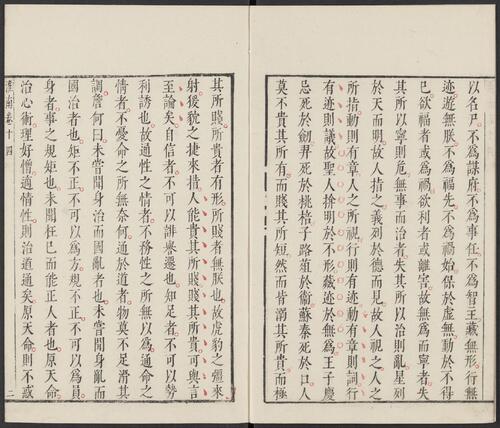 以名尸不爲謀府不爲事任不爲智主藏無形行無
迹遊無朕不爲福先不爲禍始保於虛無動於不得
已欲福者或爲禍欲利者或離害故無爲而寧者失
其所以寧則危無事而治者失其所以治則亂星列
於天而明故人指之義列於德而見故人視之人之
所指動則有章人之所視行則有迹動有章則詞行
有迹則議故聖人揜明於不形藏迹於無爲王子慶
忌死於劒羿死於桃棓子路葅於衞蘇秦死於口人
莫不貴其所有而賤其所短然而皆溺其所貴而極
其所賤所貴者有形所賤者無朕也故虎豹之彊來
射猨貁之捷來措人能貴其所賤賤其所貴可與言
至論矣自信者不可以誹譽遷也知足者不可以勢
利誘也故通性之情者不務性之所無以爲通命之
情者不憂命之所無奈何通於道者物莫不足滑其
調詹何曰未嘗聞身治而國亂者也未嘗聞身亂而
國治者也矩不正不可以爲方規不正不可以爲員
身者事之規矩也未聞枉己而能正人者也原天命
治心術理好憎適情性則治道通矣原天命則不惑
淮南卷十四
二